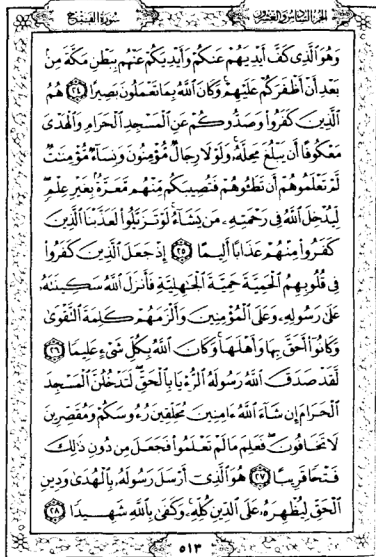 الجزء السادس والعشرون سورة الفتح
وَهُوَ ٱلَّذِى كَفَّ أَيْدِيَهُمْ عَنكُمْ وَأَيْدِيَكُمْ عَنْهُم بِبَطْنِ مَكَّةَ مِنۢ
بَعْدِ أَنْ أَظْفَرَكُمْ عَلَيْهِمْ ۚ وَكَانَ ٱللَّهُ بِمَا تَعْمَلُونَ بَصِيرًا ﴿٢٤﴾ هُمُ
ٱلَّذِينَ كَفَرُوا۟ وَصَدُّوكُمْ عَنِ ٱلْمَسْجِدِ ٱلْحَرَامِ وَٱلْهَدْىَ
مَعْكُوفًا أَن يَبْلُغَ مَحِلَّهُۥ ۚ وَلَوْلَا رِجَالٌ مُّؤْمِنُونَ وَنِسَآءٌ مُّؤْمِنَـٰتٌ
لَّمْ تَعْلَمُوهُمْ أَن تَطَـُٔوهُمْ فَتُصِيبَكُم مِّنْهُم مَّعَرَّةٌۢ بِغَيْرِ عِلْمٍ ۖ
لِّيُدْخِلَ ٱللَّهُ فِى رَحْمَتِهِۦ مَن يَشَآءُ ۚ لَوْ تَزَيَّلُوا۟ لَعَذَّبْنَا ٱلَّذِينَ
كَفَرُوا۟ مِنْهُمْ عَذَابًا أَلِيمًا ﴿٢٥﴾ إِذْ جَعَلَ ٱلَّذِينَ كَفَرُوا۟
فِى قُلُوبِهِمُ ٱلْحَمِيَّةَ حَمِيَّةَ ٱلْجَـٰهِلِيَّةِ فَأَنزَلَ ٱللَّهُ سَكِينَتَهُۥ
عَلَىٰ رَسُولِهِۦ وَعَلَى ٱلْمُؤْمِنِينَ وَأَلْزَمَهُمْ كَلِمَةَ ٱلتَّقْوَىٰ
وَكَانُوٓا۟ أَحَقَّ بِهَا وَأَهْلَهَا ۚ وَكَانَ ٱللَّهُ بِكُلِّ شَىْءٍ عَلِيمًا ﴿٢٦﴾
لَّقَدْ صَدَقَ ٱللَّهُ رَسُولَهُ ٱلرُّءْيَا بِٱلْحَقِّ ۖ لَتَدْخُلُنَّ ٱلْمَسْجِدَ
ٱلْحَرَامَ إِن شَآءَ ٱللَّهُ ءَامِنِينَ مُحَلِّقِينَ رُءُوسَكُمْ وَمُقَصِّرِينَ
لَا تَخَافُونَ ۖ فَعَلِمَ مَا لَمْ تَعْلَمُوا۟ فَجَعَلَ مِن دُونِ ذَٰلِكَ
فَتْحًا قَرِيبًا ﴿٢٧﴾ هُوَ ٱلَّذِىٓ أَرْسَلَ رَسُولَهُۥ بِٱلْهُدَىٰ وَدِينِ
ٱلْحَقِّ لِيُظْهِرَهُۥ عَلَى ٱلدِّينِ كُلِّهِۦ ۚ وَكَفَىٰ بِٱللَّهِ شَهِيدًا ﴿٢٨﴾
٥١٣